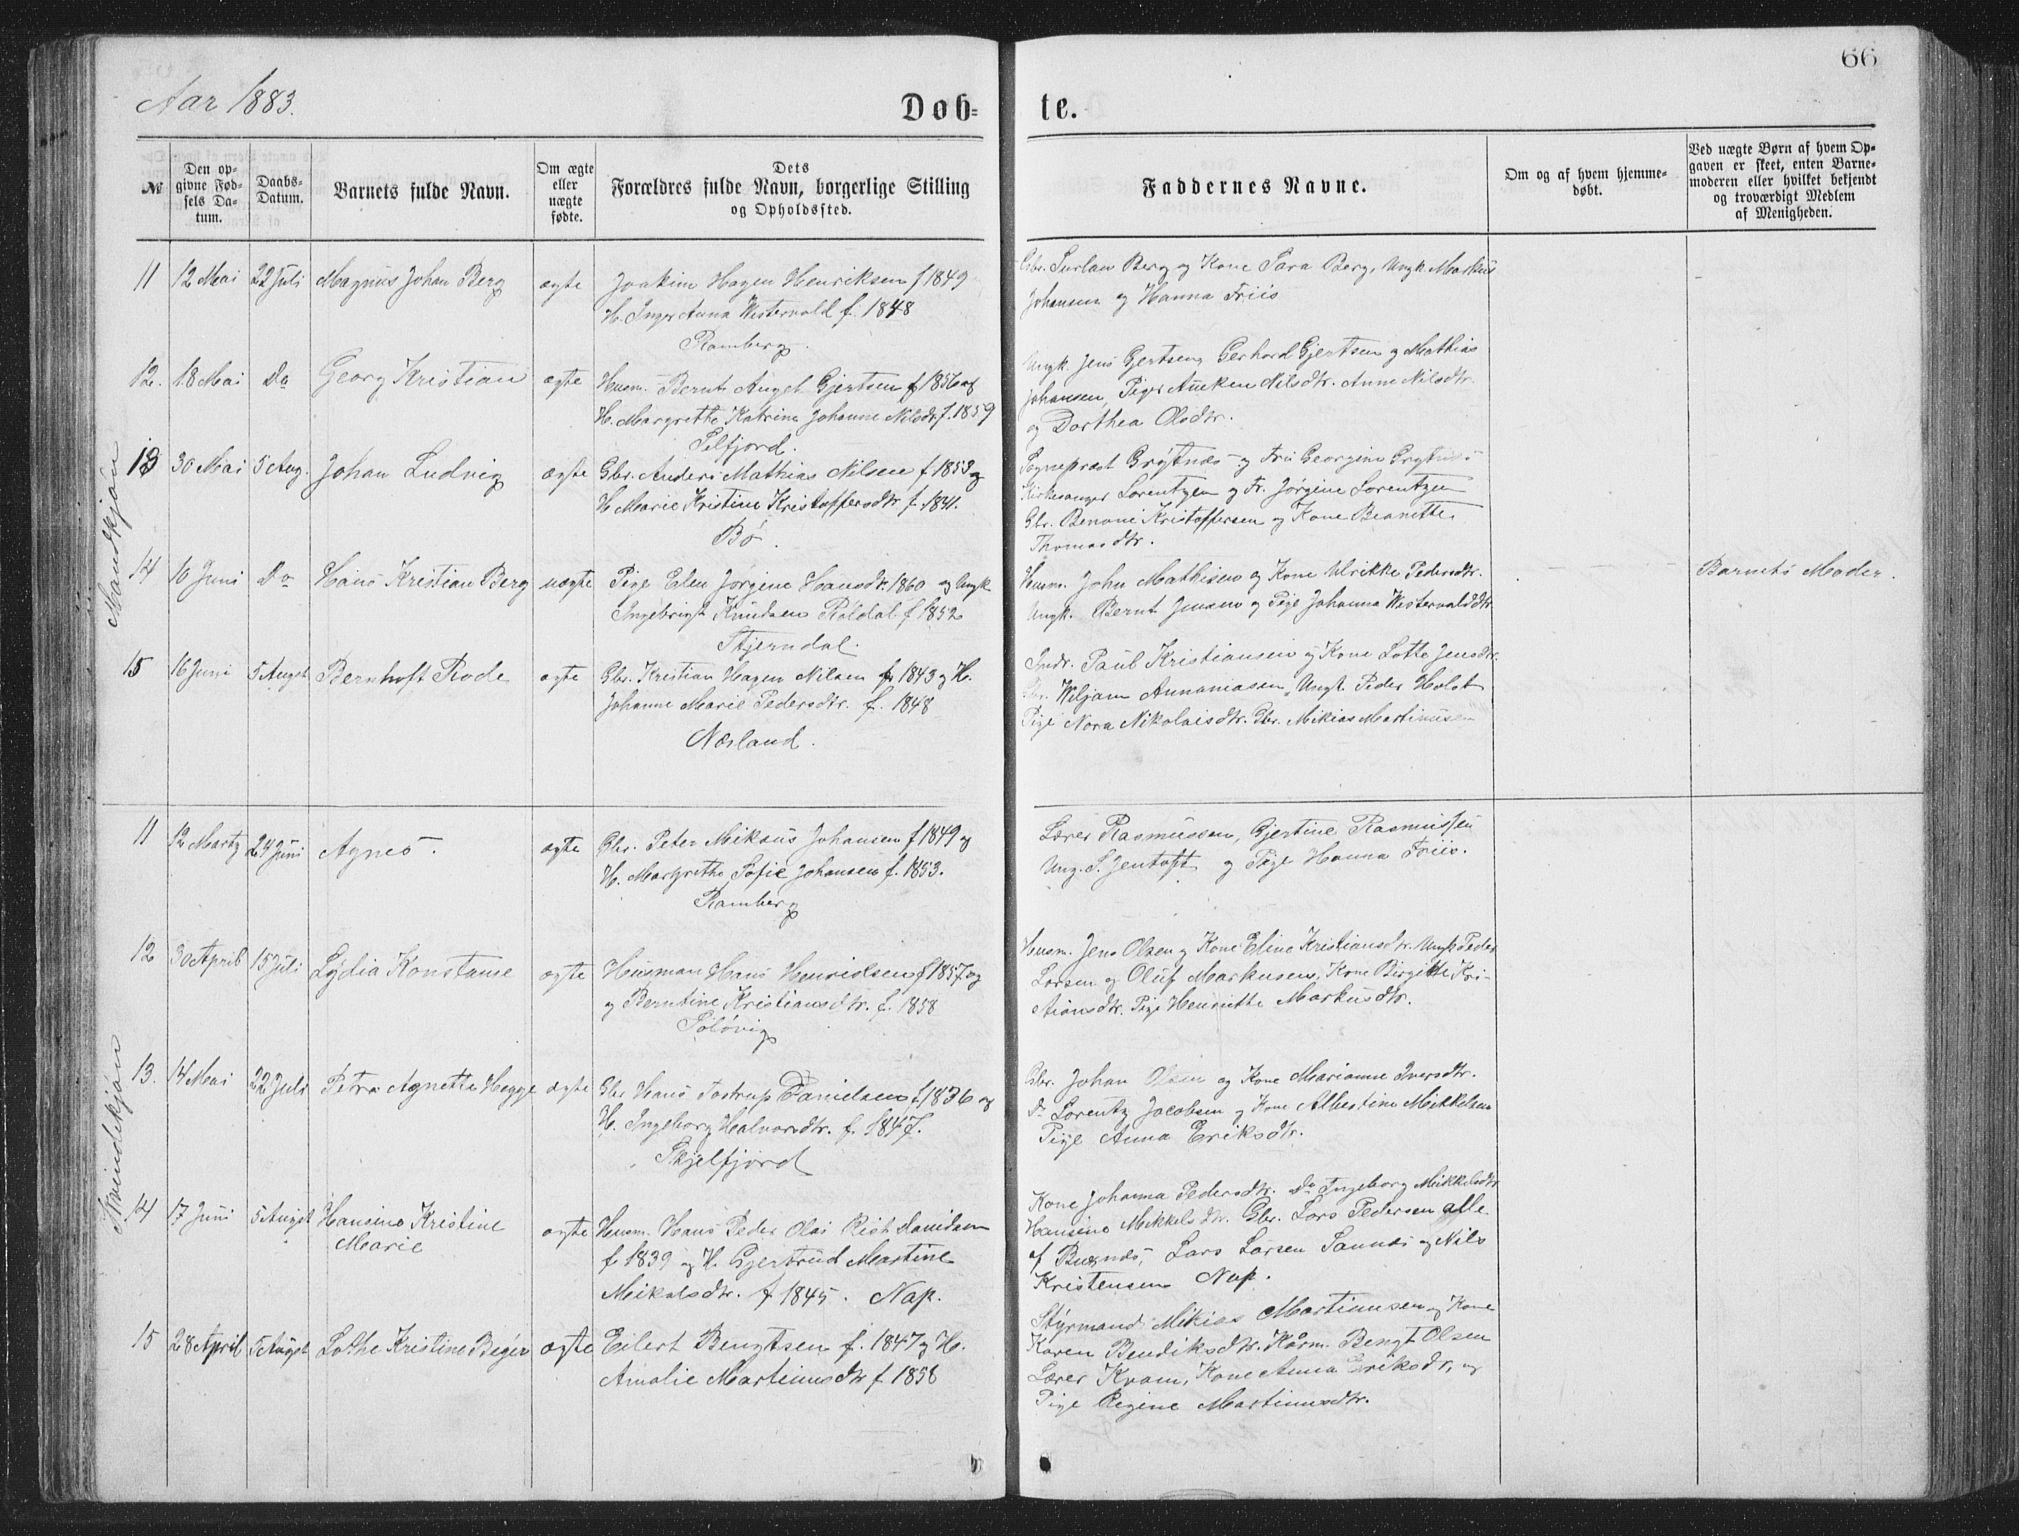 66
Aar 1883.
Døb-
te.
№
Den op-
givne Fød-
sels Da-
tum.
Daabs-
Datum.
Barnets fulde Navn.
Om ægte
eller
uægte
fødte.
Dets
Forældres fulde Navn, borgerlige Stilling
og Opholdssted.
Faddernes Navne.
Om og af hvem hjemme-
døbt.
Ved uægte Børn af hvem Op-
gaven er skeet, enten Barne-
moderen eller hvilket bekjendt
og troværdigt Medlem
af Menigheden.
Mandkjøn
11 12 Mai 22 Juli Magnus Johan Berg ægte Joakim Hagen Henriksen f 1849
H. Inger Anna Westervold f. 1848
Ramberg.
Gbr. Surlau Berg og Kone Sara Berg, Ungk. Markus
Johansen og Hanna Friis
12. 18 Mai Do Georg Kristian ægte Husm. Bernt Auget Gjertsen f 1856 og
H. Margrethe Katrine Johanne Nilsdtr. f. 1859
Selfjord.
Ungk. Jens Gertsen, Gerhard Gjertsen og Mathias
Johansen, Piger Anken Nilsdtr. Anne Nilsdtr.
og Dorthea Olsdtr.
13 30 Mai 5 Aug. Johan Ludvig ægte Gbr. Anders Mathias Nilsen f 1853 og
H. Marie Kristine Kristoffersdtr f. 1841.
Bø.
Sognepræst Grytnæs og Fru Georgine Grytnæs
Kirkesanger Lorentzen og Fr. Jørgine Lorentzen
Gbr. Benoni Kristoffersen og Kone Beanette
Thomasdtr.
14 10 Juni Do Hans Kristian Berg uægte Pige Elen Jørgine Hansdtr. 1860 og Ungk
Ingebrigt Knudsen Røldal f 1852
Stjerndal.
Husm. John Mathisen og Kone Ulrikke Pedersdtr.
Ungk. Bernt Jensen og Pige Johanna Westervalddtr.
Barnets Moder.
15 16 Juni 5 Augst Bernhoft Rode ægte Gbr. Kristian Hagen Nilsen f 1843 og H.
Johanne Marie Pedersdtr. f. 1848
Næsland.
Indr. Paul Kristiansen og Kone Lotte Jensdtr.
Gbr. Wiljam Annaniasen, Ungk. Peder Holst
Pige Nora Nikolaisdtr. Gbr. Mikias Martinusen
Kvindekjøn
11 12 Martz 24 Juni Agnes. ægte Gbr. Peter Mikaus Johansen f 1849 og
H. Margrethe Sofie Johansen f. 1853.
Ramberg
Lærer Rasmussen, Gjertine Rasmussen
Ung. S. Jentoft og Pige Hanna Friis.
12 30 April 15 Juli Lydia Konstanse ægte Husman Hans Henriksen f 1857 og
og Berntine Kristiansdtr. f. 1858
Sølövig
Husm. Jens Olsen og Kone Eline Kristiansdtr. Ungk Peder
Larsen og Oluf Markusen, Kone Birgitte Kri-
stiansdtr. Pige Henriette Markusdtr.
13. 14 Mai 22 Juli Petra Agnette Hegge ægte Gbr Hans Tostrup Danielsen f. 1836 og
H. Ingeborg Halvorsdtr. f. 1847.
Skjelfjord
Gbr. Johan Olsen og Kone Marianne Iversdtr.
Do Lorentz Jacobsen og Kone Albertine Mikkelsen
Pige Anna Eriksdtr.
14 17 Juni 5 Augst Hansine Kristine
Marie
ægte Husm. Hans Peder Olai Rist Danielsen
f 1839 og H. Gjertrud Martine
Mikalsdtr. f 1845. Nap.
Kone Johanna Pedersdtr. Do Ingeborg Mikkelsdtr
Hansine Mikkelsdtr. Gbr. Lars Pedersen alle
af Busnes, Lars Larsen Sannes og Nils
Kristensen Nap.
15 28 April 5 Augst Lothe Kristine Beyer ægte Eilert Bengtsen f. 1847 og H.
Amalie Martinusdtr f 1858
Styrmand Mikias Martinusen og Kone
Karen Bendiksdtr. Husm. Bengt Olsen
Lærer Kvam, Kone Anna Eriksdtr, og
Pige Regine Martinusdtr.